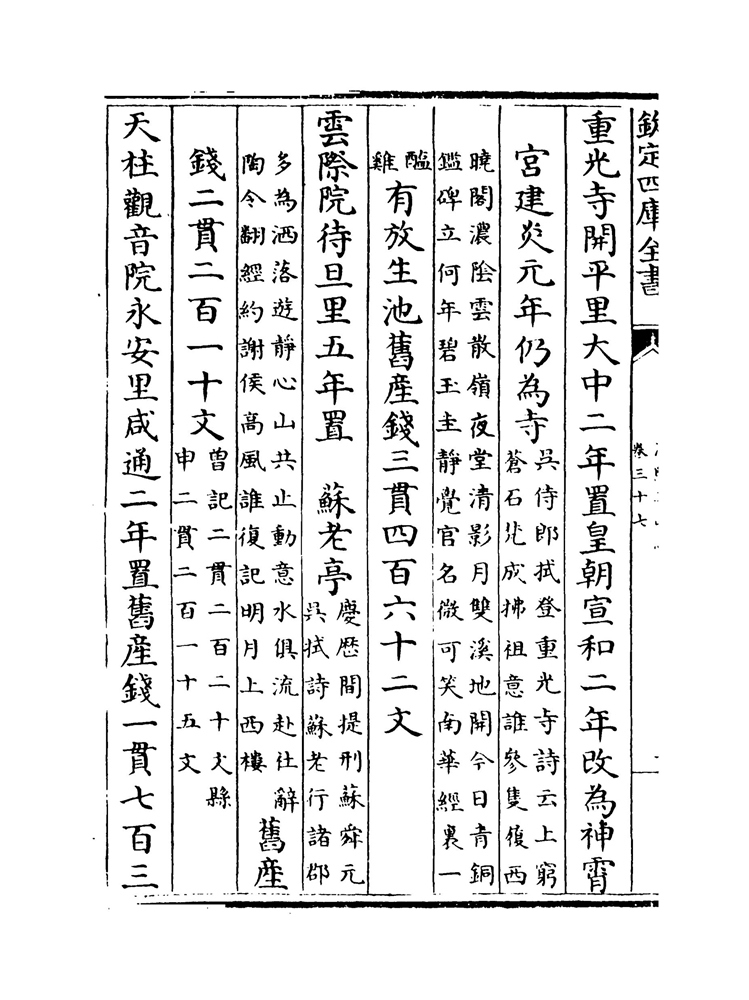 欽定四庫全書
卷三十七
重光寺開平里大中二年置皇朝宣和二年改為神霄
宮建炎元年仍為寺
吳侍郎拭登重光寺詩云上窮
蒼石成拂祖意誰參隻履西
曉閣濃陰雲散嶺夜堂清影月雙溪地開今日青銅
鑑碑立何年碧玉圭靜覺官名微可笑南華經裏一
醯
雞
有放生池舊産錢三貫四百六十二文
雲際院待旦里五年置　蘇老亭
慶厯間提刑蘇舜元
吳拭詩蘇老行諸郡
多為洒落遊靜心山共止動意水俱流赴社辭
陶令翻經約謝侯高風誰復記明月上西樓
舊産
錢二貫二百一十文
曾記二貫二百二十文縣
申二貫二百一十五文
天柱觀音院永安里咸通二年置舊産錢一貫七百三